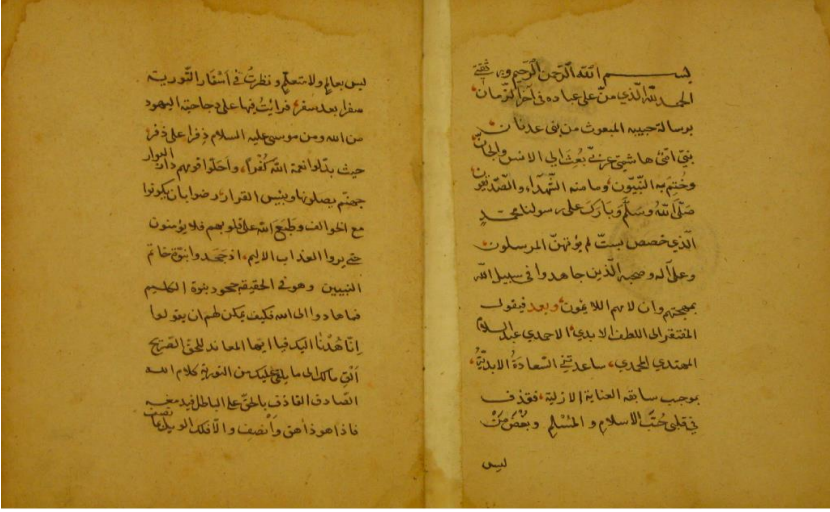 بسم الله الرحمن الرحيم وبه ثقتي
الحمد لله الذي منّ على عباده في آخر الزمان
برسالة حبيبه المبعوث من بني عدنان
نبيّ امّيّ هاشميّ عربيّ بُعثَ الى الانس والجان
وخُتم به النبيّون وما منه الشهداء والصدّيقون
صلّى الله وسلّم وبارك على رسولنا محمد
الّذي خصص بستّ لم يؤتهنّ المرسلون
وعلى آله وصحبه الّذين جاهدوا في سبيل الله
بمهجتهم وان لامهم اللايمون وبعد فيقول
المفتقر الى اللطف الابديّ الاحمدي عبد السلام
المهتدي المحمدي ساعدتني السّعادةُ الابديّةُ
بموجب سابقه العناية الازلية فقذف
في قلبي حُبّ الاسلام والمُسْلم وبُغضُ مَنْ
ليس
ليس بعالم ولا متعلّم ونظرتُ في أسفار التّورية
سفرا بعد سفر فرايتُ فيها على دجاجة اليهود
من الله ومن موسى عليه السلام زفرا على زفر
حيث بدّلوا نعمة الله كُفراً وأحلّوا قومهم دار البوار
جهنّم يصلونها وبئس القرار رضوا بان يكونوا
مع الخوالف وطبع الله على قلوبهم فلا يؤمنون
حتى يروا العذاب الاليم اذ جحدوا نبوّة خاتم
النبيين وهو في الحقيقه جحود بنوة الكليم
فما هادوا الى الله فكيف يمكن لهم ان يقولوا
إنّا هُدْنا اليك فيا ايها المعاند للحق الصّريح
ألقِ مالك الى ما يلقى عليك من التورية كلام الله
الصّادق القاذف بالحقّ على الباطل فيدمغه
فاذا هو زاهق وأنصف والّا فلك الويل مما تصف